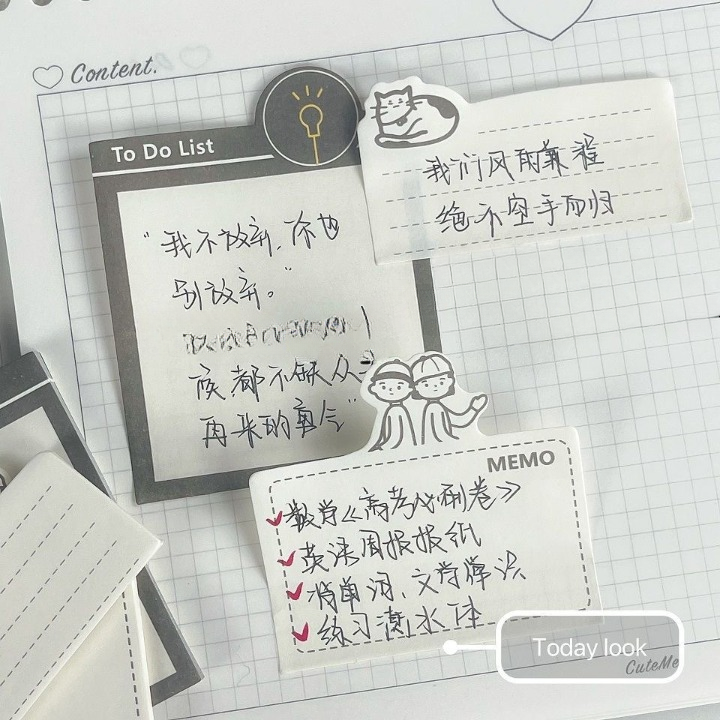 Content.
To Do List
我们风雨兼程
绝不空手而归
"我不放弃,你也
别放弃。"
候都不缺从
再来的勇气"
MEMO
数学《高考必刷卷》
英语周报报纸
背单词、文学常识
练习衡水体
Today look
CuteMe